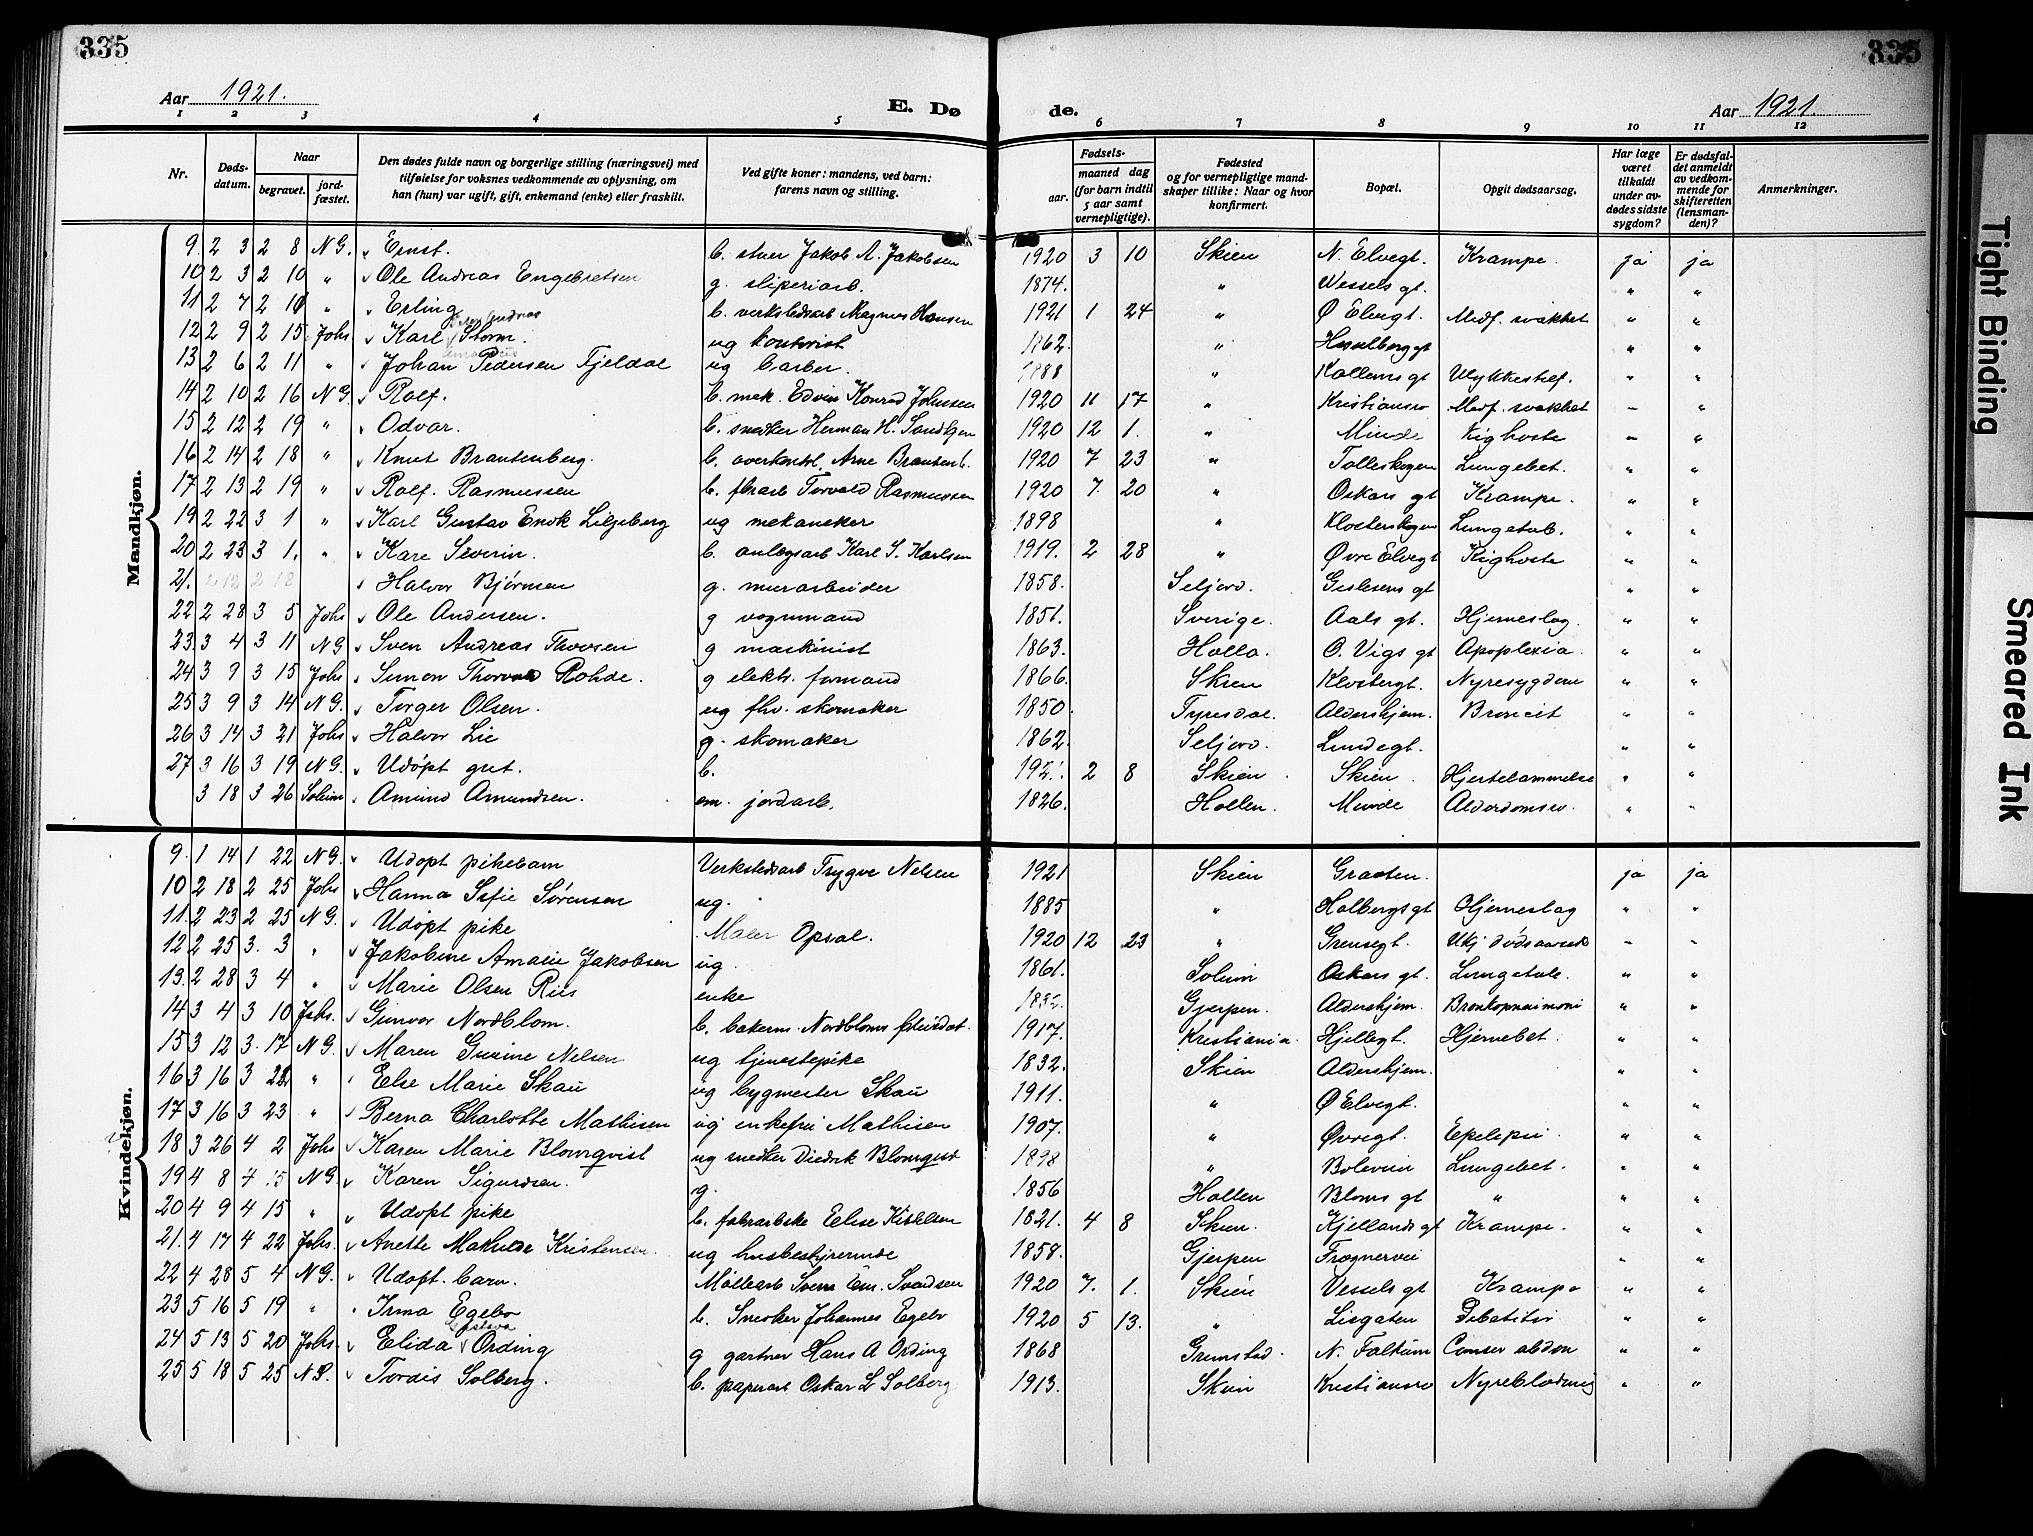 335
335
Aar 1921.
E. Dø
de.
Aar 1921.
1 2 3 4 5 6 7 8 9 10 11 12
Nr.
Døds-
datum.
Naar
begravet.
jord-
fæstet.
Den dødes fulde navn og borgerlige stilling (næringsvei) med
tilføielse for voksnes vedkommende av oplysning, om
han (hun) var ugift, gift, enkemand (enke) eller fraskilt.
Ved gifte koner: mandens, ved barn:
farens navn og stilling.
Fødsels-
aar.
maaned dag
(for barn indtil
5 aar samt
vernepligtige).
Fødested
og for vernepligtige mand-
skaper tillike: Naar og hvor
konfirmert.
Bopæl.
Opgit dødsaarsag.
Har læge
været
tilkaldt
under av-
dødes sidste
sygdom?
Er dødsfal-
det anmeldt
av vedkom-
mende for
skifteretten
(lensman-
den)?
Anmerkninger.
Mandkjøn.
9. 2 3 2 8 N G. Ernst. b. stuer Jakob A. Jakobsen 1920 3 10 Skien N. Elvegt. Krampe. ja ja
10 2 3 2 10 " Ole Andreas Engebretsen g. sliperiarb. 1874. " Wessels gt. " "
11 2 7 2 10 " Erling b. verkstedsarb Magnus Hansen 1921 1 24 " Ø Elvegt. Medf. svakhet " "
12 2 9 2 15 Johs Karl Storm. ug kontorist 1862. " Hesselberg gt " "
13 2 6 2 11 " Johan Pedersen Fjeldal ug barber. 1888 " Kallems gt Ulykkestilf. " "
14 2 10 2 16 N G. Rolf. b. mek. Edvin Konrad Johnsen 1920 11 17 " Kristiansv Medf. svakhet " "
15 2 12 2 19 " Odvar. b. snedker Herman H. 1920 12 1. " Minde Kighoste " "
16 2 14 2 18 " Knut Brantenberg. b. Arne Brantenb. 1920 7 23 " Folleskogen Lungebet. " "
17 2 13 2 19 " Rolf. Rasmussen b. fbrarb Torvald Rasmussen 1920 7. 20 " Oskars gt Krampe. " "
19 2 22 3 1 " Karl Gustav Enok Liljeberg ug mekaneker 1898 " Klosterskogen Lungetub. " "
20 2 23 3 1. " Kare Severin. b. anlægsarb Karl S. Karlsen 1919. 2 28 " Øvre Elvegt Kighoste " "
21. 2 12 2 18 Halvor Bjørnsen g. murarbeider 1858. Seljord. Gislesens gt " "
22 2 28 3 5 Johs Ole Andersen. g vognmand 1851. Sverige. Aals gt. Hjerneslag. " "
23. 3 4 3 11 N G Sven Andreas Thorsen g maskinist 1863. Holla. O. Vigs gt Apoplexia. " "
24 3 9 3 15 Johs Simon Thorvald Rohde. g elektr. formand 1866. Skien Klostergt. Nyresygdom " "
25 3 9 3 14 N G. Torger Olsen. ug fhv. skomaker 1850. Fyresdal. Aldershjem. Broncit " "
26 3 14 3 21 Johs Halvor Lie g. skomaker 1862. Seljord. Lundegt. " "
27 3 16 3 19 N G. Udöpt gut. b. 192 2 8 Skien Skien. Hjertelammelse " "
3 18 3 26 Solum Amund Amundsen. em. jordarb. 1826. Hollen. Minde Alderdomssv. " "
Kvindekjøn.
9. 1 14 1 22 N G. Udøpt pikebarn Verkstedsarb Trygve Nelsen 1921 Skien Graaten. ja ja
10 2 18 2 25 Johs Hanna Sofie Sørensen ug. 1885 " Holbergs gt Hjerneslag " "
11. 2 23 2 25 N G. Udöpt pike Maler Opsal. 1920 12 23 " Grensegt. Ukj dödsaarsak " "
12 2 25 3. 3 " Jakobine Amalie Jakobsen ug. 1861. Solum Oskars gt. Lungetub. " "
13. 2 28 3 4 " Marie Olsen Riis enke Gjerpen. Aldershjem. Bronkopnaimoni " "
14 3 4 3 10 Johs. Gunvor Nordblom. b. bakerm. Nordbloms 1917. Kristiania. Hjellegt. Hjernebet. " "
15 3 12 3. 17 N G. Maren Gurine Nelsen ug tjenestepike 1832. Skien Aldershjem. " "
16 3 16 3 22 " Else Marie Skau ug bygmester Skau 1911. " Ø Elvegt. " "
17 3 16 3 23 " Berna Charlotte Mathisen ug enkefru Mathisen 1907. " Øvregt. Epelepsi. " "
18 3 26 4 2 Johs Karen Marie Blomqvist ug snedker Diedrik Blomqvist 1898 " Bolevein Lungebet. " "
19 4 8 4 15 N G. Karen Sigurdsen. g. 1856 Hollen Bloms gt " " "
20 4 9 4 15 " Udøpt pike b. fabrarbske Else Kittelsen 1921. 4 8 Skien. Kjellands gt Krampe. " "
21. 4 17 4 22 Johs. Anette Mathilde Kristensen. ug husbestyrerinde 1858. Gjerpen Frognervei " "
22 4 28 5 4 N G. Udøpt. barn. Møllearb Sven Em. Svendsen 1920 7. 1. Skien Vessels gt Krampe " "
23 5 16 5 19 " Irma Egebo b. Snedker Johannes Egebo 1920 5 13. " Lisgaten " "
24 5 13 5 20 Johs. Elida Gustava Ording g gartner Hans A Ording 1868 Grimstad. N. Falkum Canser abdom " "
25 5 18 5 25 N G. Tordis Solberg. b. papirarb Oskar L Solberg 1913. Skien Kristiansv Nyreblødning " "
Tight Binding
Smeared Ink